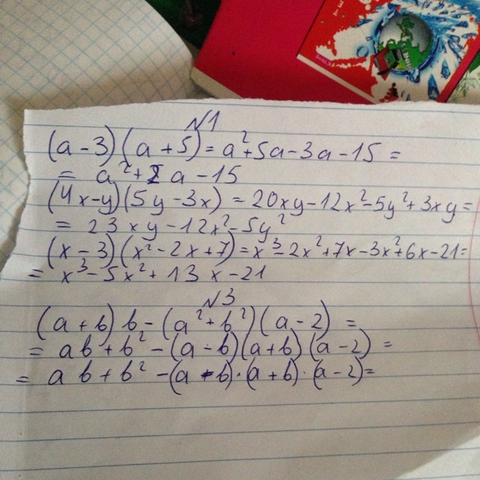 №1
(a-3)(a+5)=a²+5a-3a-15=
= a²+2a-15
(4x-y)(5y-3x)=20xy-12x²-5y²+3xy=
= 23xy-12x²-5y²
(x-3)(x²-2x+7)=x³-2x²+7x-3x²+6x-21=
= x³-5x²+13x-21
№3
(a+b)b-(a²+b²)(a-2)=
= ab+b²-(a-b)(a+b)(a-2)=
= ab+b²-(a-b)·(a+b)·(a-2)=